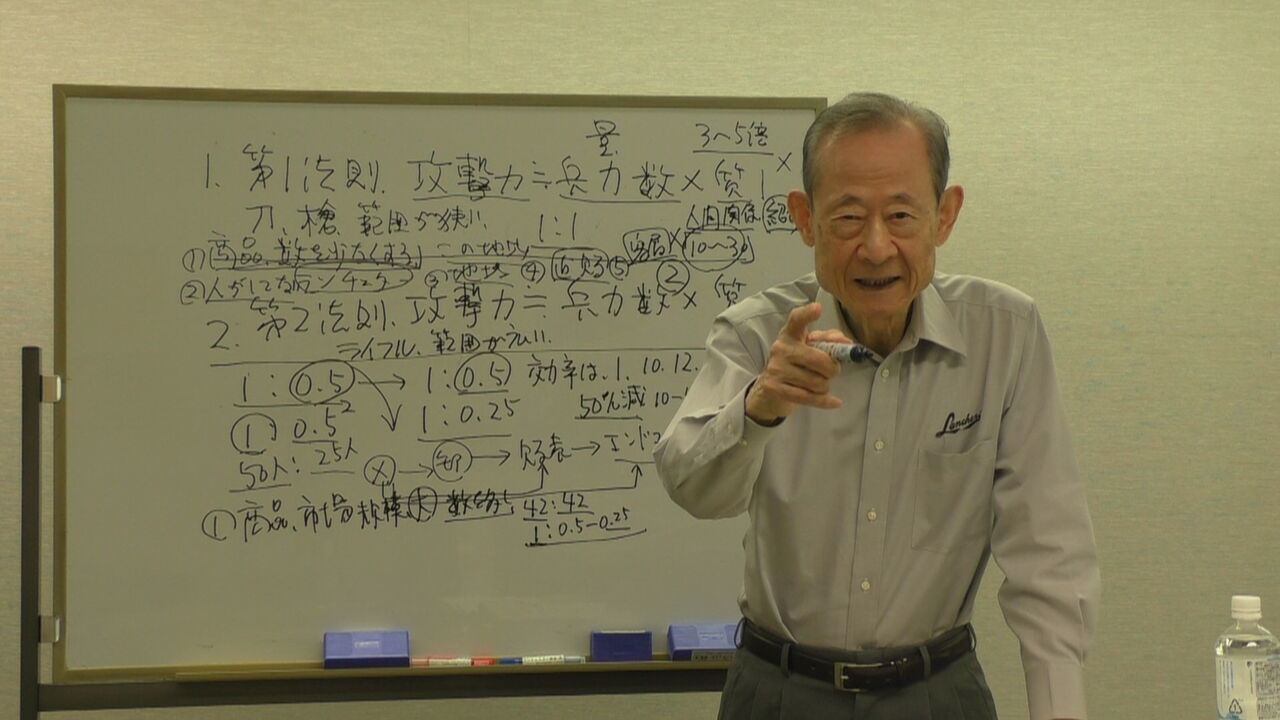 量
3〜5倍
1. 第1法則. 攻撃力≒兵力数×質
刀、槍、範囲が狭い 1:1 人間関係
①商品、数を少なくする
10〜30
②人がしてない ③地域 ④直販 ⑤
②
2. 第2法則. 攻撃力≒兵力数×質
ライフル、範囲が広い.
1:0.5 → 1:0.5 効率は、1. 10. 12.
1:0.5² 1:0.25 50%減
50人:25人 メ→卸→ →エンド
①商品、市場規模大 42:42
1:0.5-0.25
Lanchester